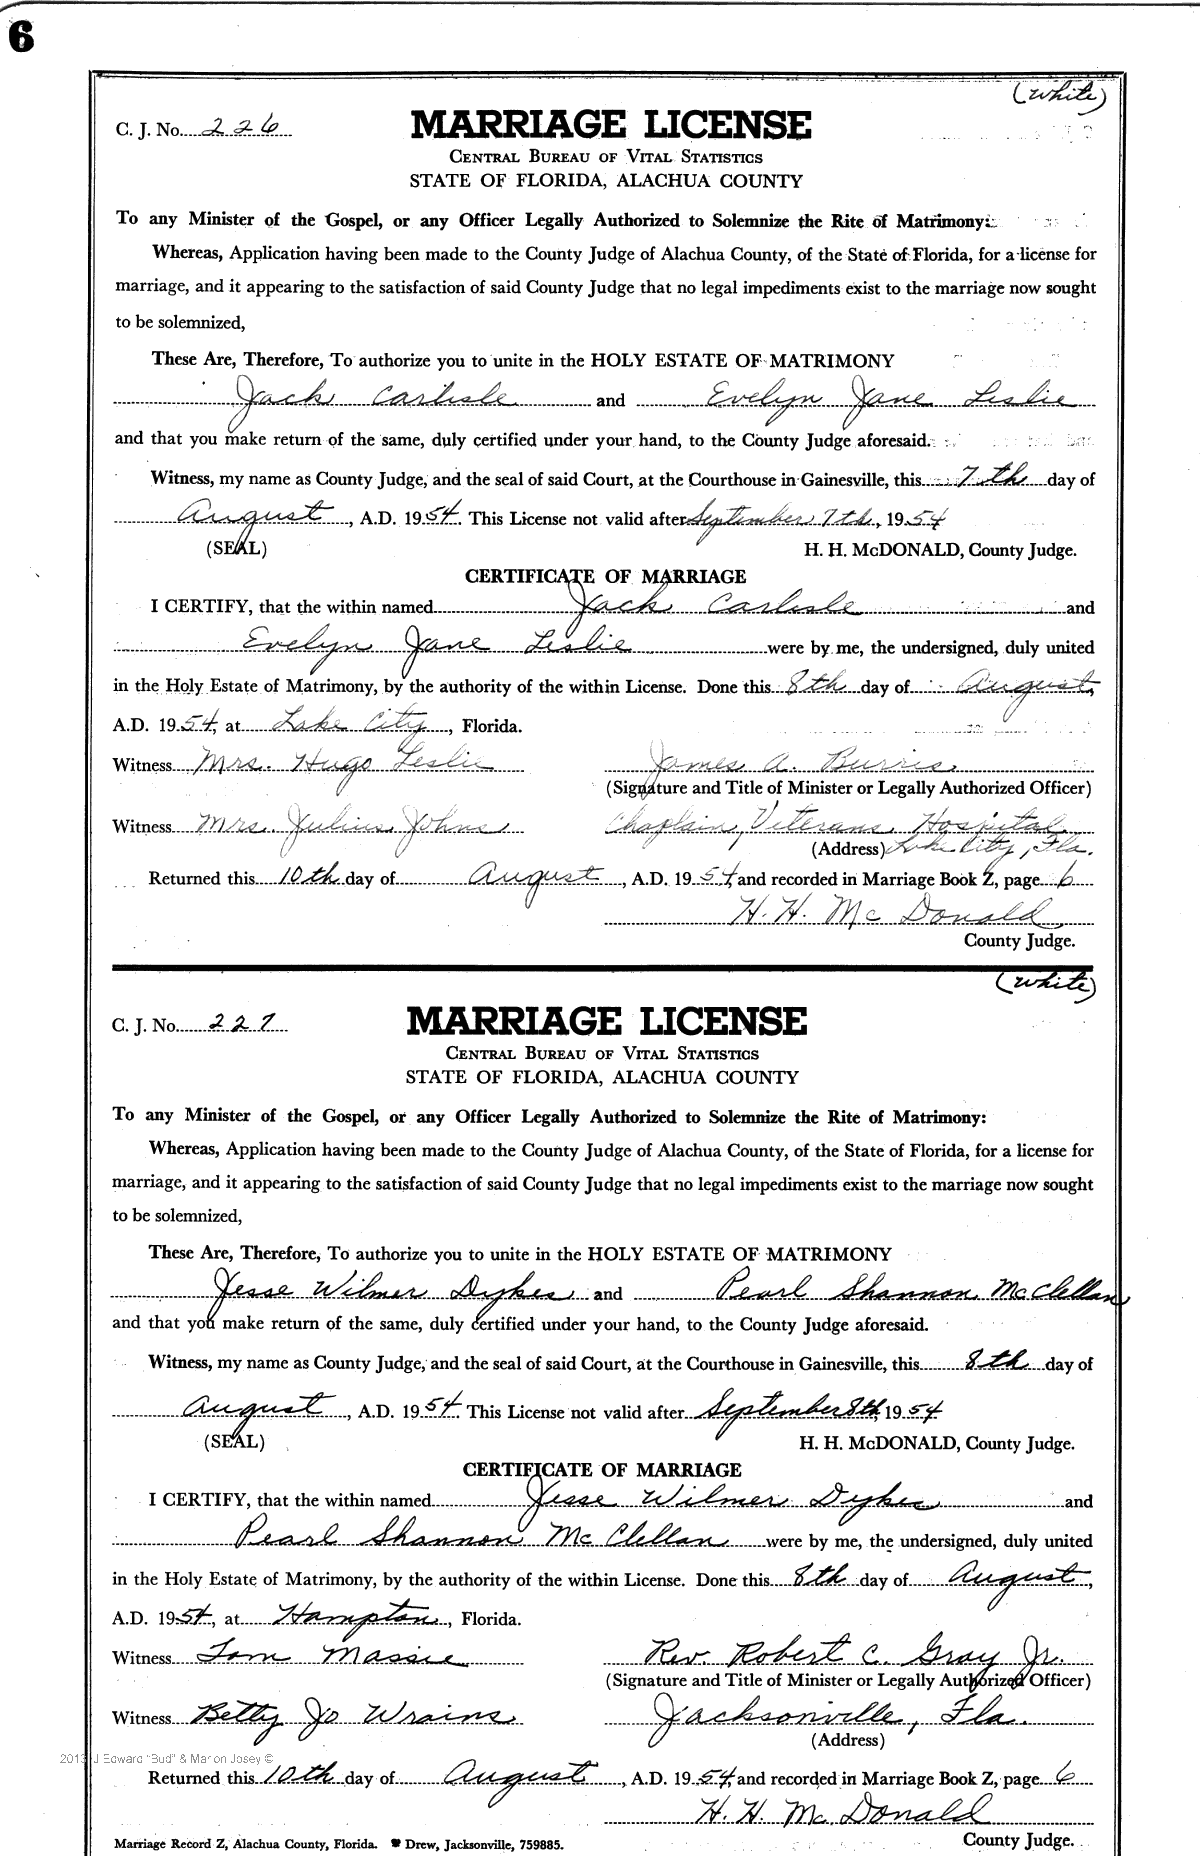 6
(White)
C. J. No. 226
MARRIAGE LICENSE
CENTRAL BUREAU OF VITAL STATISTICS
STATE OF FLORIDA, ALACHUA COUNTY
To any Minister of the Gospel, or any Officer Legally Authorized to Solemnize the Rite of Matrimony:
Whereas, Application having been made to the County Judge of Alachua County, of the State of Florida, for a license for
marriage, and it appearing to the satisfaction of said County Judge that no legal impediments exist to the marriage now sought
to be solemnized,
These Are, Therefore, To authorize you to unite in the HOLY ESTATE OF MATRIMONY
Jack Carlisle and Evelyn Jane Leslie
and that you make return of the same, duly certified under your hand, to the County Judge aforesaid.
Witness, my name as County Judge, and the seal of said Court, at the Courthouse in Gainesville, this 7th day of
August, A.D. 1954. This License not valid after September 7th, 1954
(SEAL) H. H. McDONALD, County Judge.
CERTIFICATE OF MARRIAGE
I CERTIFY, that the within named Jack Carlisle and
Evelyn Jane Leslie were by me, the undersigned, duly united
in the Holy Estate of Matrimony, by the authority of the within License. Done this 8th day of August,
A.D. 1954, at Lake City, Florida.
Witness Mrs. Hugo Leslie James A. Burris
(Signature and Title of Minister or Legally Authorized Officer)
Witness Mrs. Julius Johns Chaplain, Veterans Hospital
(Address) Lake City, Fla.
Returned this 10th day of August, A.D. 1954, and recorded in Marriage Book Z, page 6
H. H. McDonald
County Judge.
(White)
C. J. No. 227
MARRIAGE LICENSE
CENTRAL BUREAU OF VITAL STATISTICS
STATE OF FLORIDA, ALACHUA COUNTY
To any Minister of the Gospel, or any Officer Legally Authorized to Solemnize the Rite of Matrimony:
Whereas, Application having been made to the County Judge of Alachua County, of the State of Florida, for a license for
marriage, and it appearing to the satisfaction of said County Judge that no legal impediments exist to the marriage now sought
to be solemnized,
These Are, Therefore, To authorize you to unite in the HOLY ESTATE OF MATRIMONY
Jesse Wilmer Dykes and Pearl Shannon McClellan
and that you make return of the same, duly certified under your hand, to the County Judge aforesaid.
Witness, my name as County Judge, and the seal of said Court, at the Courthouse in Gainesville, this 8th day of
August, A.D. 1954. This License not valid after September 8th, 1954
(SEAL) H. H. McDONALD, County Judge.
CERTIFICATE OF MARRIAGE
I CERTIFY, that the within named Jesse Wilmer Dykes and
Pearl Shannon McClellan were by me, the undersigned, duly united
in the Holy Estate of Matrimony, by the authority of the within License. Done this 8th day of August,
A.D. 1954, at Hampton, Florida.
Witness Tom Massie Rev. Robert C. Gray Jr.
(Signature and Title of Minister or Legally Authorized Officer)
Witness Betty Jo Wrains Jacksonville, Fla.
(Address)
2013 J Edward "Bud" & Marion Josey ©
Returned this 10th day of August, A.D. 1954, and recorded in Marriage Book Z, page 6
H. H. McDonald
Marriage Record Z, Alachua County, Florida. Drew, Jacksonville, 759885. County Judge.